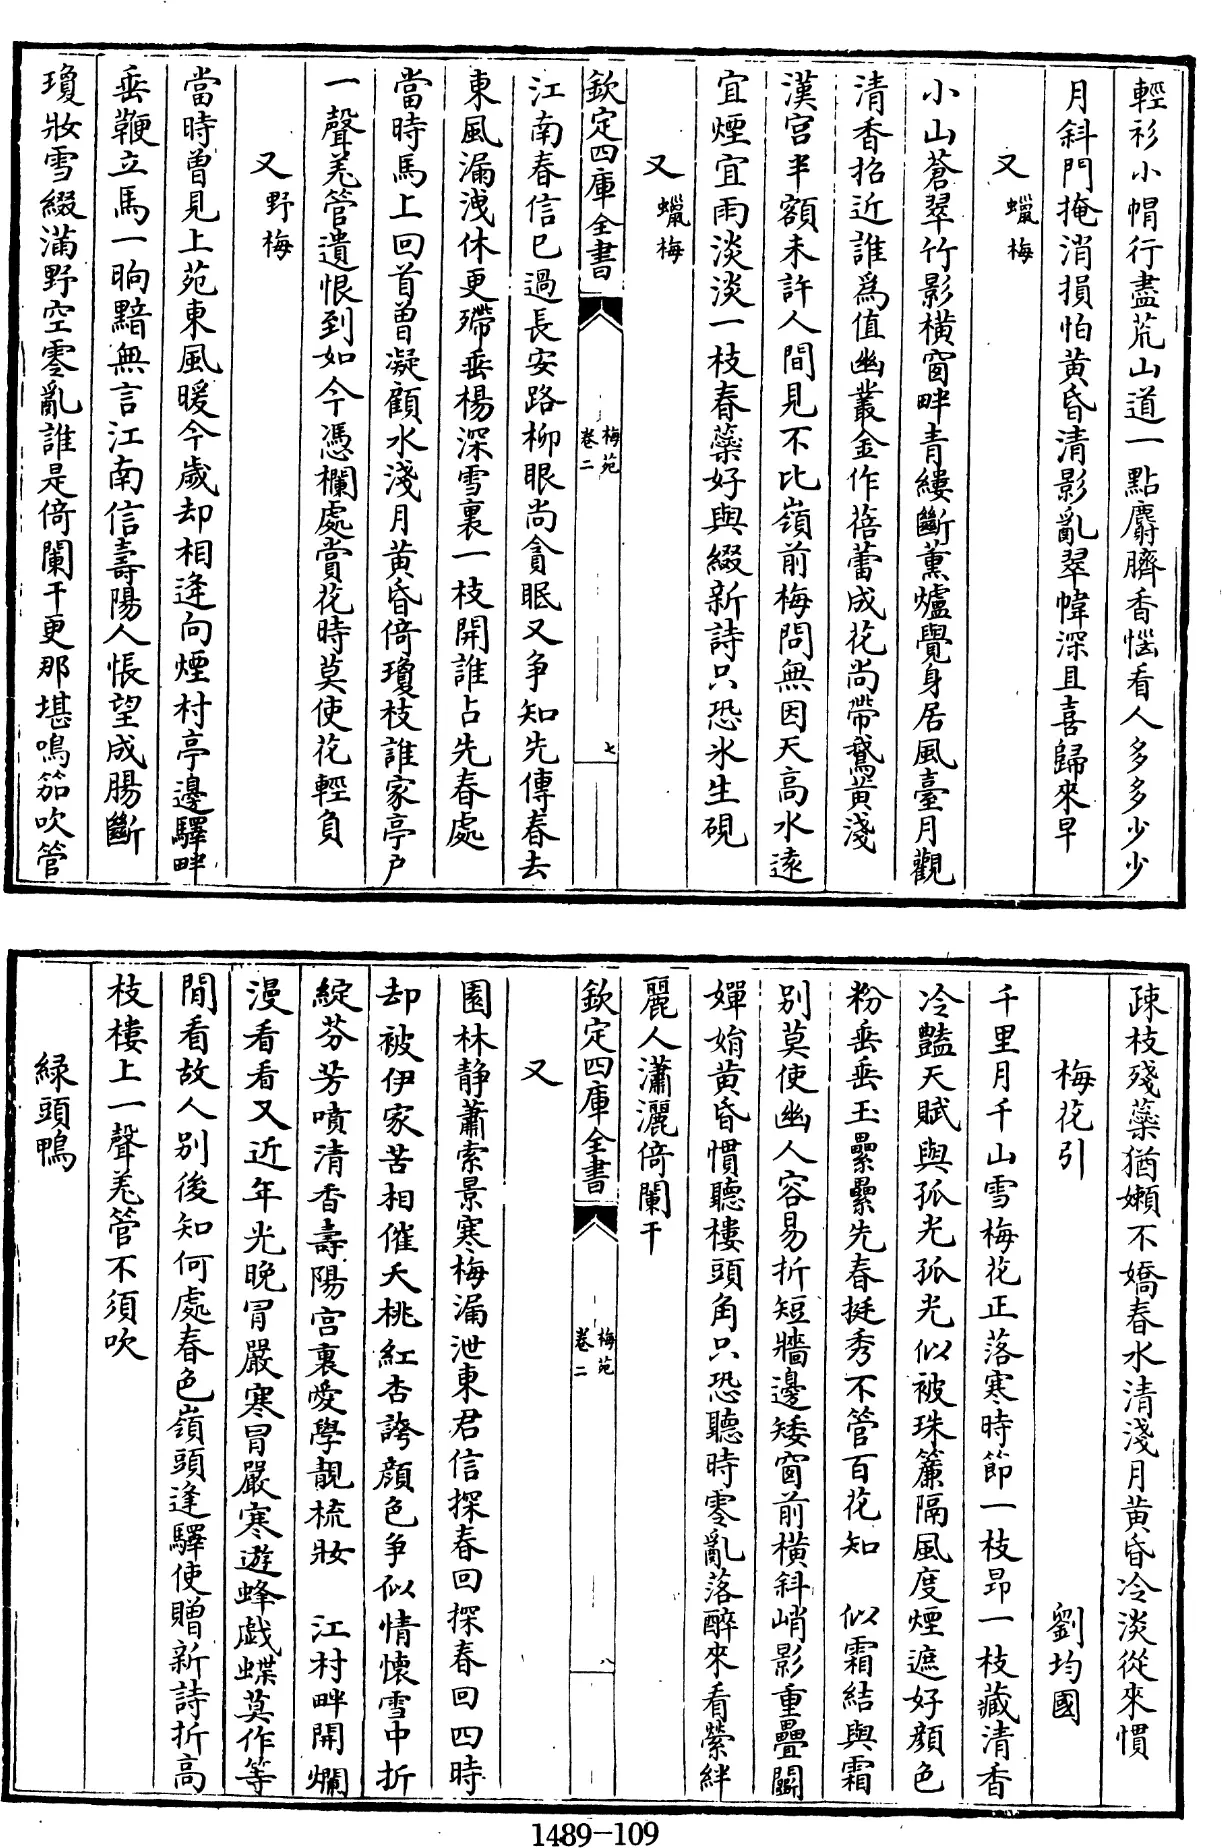 輕衫小帽行盡荒山道一點麝臍香惱看人多多少少
月斜門掩消損怕黄昏清影亂翠幃深且喜歸來早
又蠟梅
小山蒼翠竹影橫窗畔青縷斷薰爐覺身居風臺月觀
清香招近誰為值幽叢金作蓓蕾成花尚帶鵞黄淺
漢宫半額未許人間見不比嶺前梅問無因天髙水逺
宜煙宜雨淡淡一枝春蘂好與綴新詩只恐氷生硯
又蠟梅
欽定四庫全書
梅苑
卷二
七
江南春信已過長安路柳眼尚貪眠又争知先傳春去
東風漏洩休更殢垂楊深雪裏一枝開誰占先春處
當時馬上回首曽凝顧水淺月黄昏倚瓊枝誰家亭户
一聲羌管遺恨到如今憑欄處賞花時莫使花輕負
又野梅
當時曽見上苑東風暖今嵗却相逢向煙村亭邊驛畔
垂鞭立馬一晌黯無言江南信壽陽人悵望成腸斷
瓊妝雪綴滿野空零亂誰是倚闌干更那堪鳴笳吹管
疎枝殘蘂猶嬾不嬌春水清淺月黄昏冷淡從來慣
梅花引
劉均國
千里月千山雪梅花正落寒時節一枝昻一枝藏清香
冷豔天賦與孤光孤光似被珠簾隔風度煙遮好顔色
粉垂垂玉纍纍先春挺秀不管百花知　似霜結與霜
别莫使幽人容易折短牆邊矮窗前横斜峭影重疊鬬
嬋娟黄昏慣聽樓頭角只恐聽時零亂落醉來看縈絆
麗人瀟灑倚闌干
欽定四庫全書
梅苑
卷二
八
又
園林静蕭索景寒梅漏泄東君信探春回探春回四時
却被伊家苦相催夭桃紅杏誇顔色争似情懷雪中折
綻芬芳噴清香壽陽宫裏愛學靚梳妝　江村畔開爛
漫看看又近年光晚冒嚴寒冒嚴寒遊蜂戯蝶莫作等
閒看故人别後知何處春色嶺頭逢驛使贈新詩折髙
枝樓上一聲羌管不須吹
緑頭鴨
1489-109